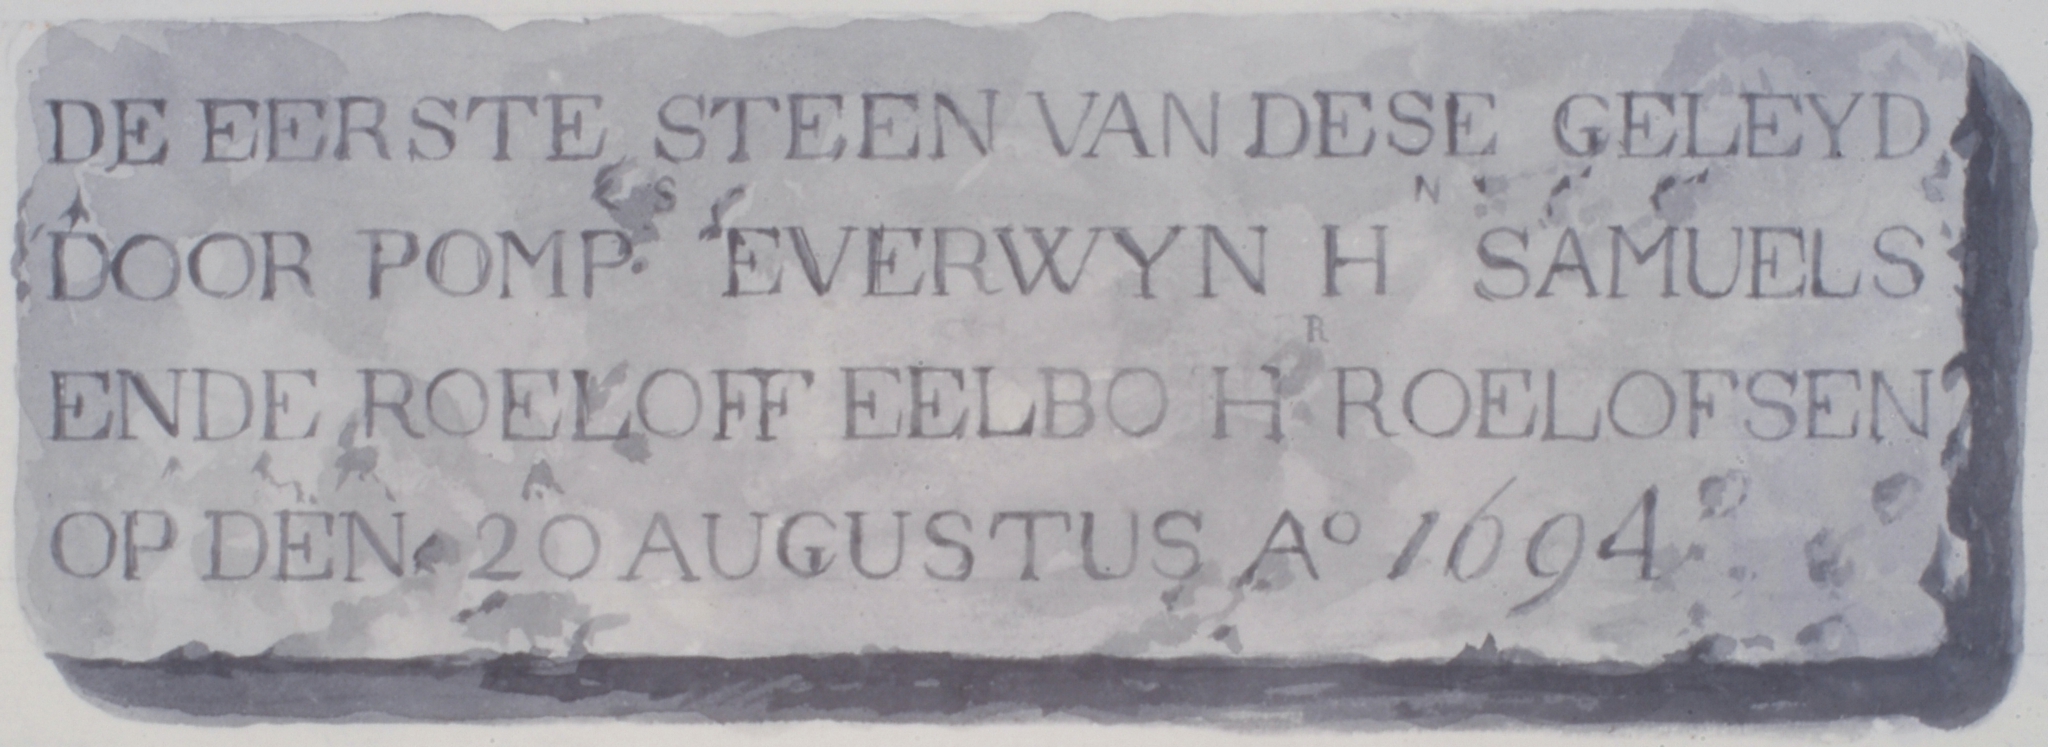 DE EERSTE STEEN VAN DESE GELEYD
DOOR POMP. S EVERWYN H N SAMUELS
ENDE ROELOFF EELBO H R ROELOFSEN
OP DEN 20 AUGUSTUS Aº 1694